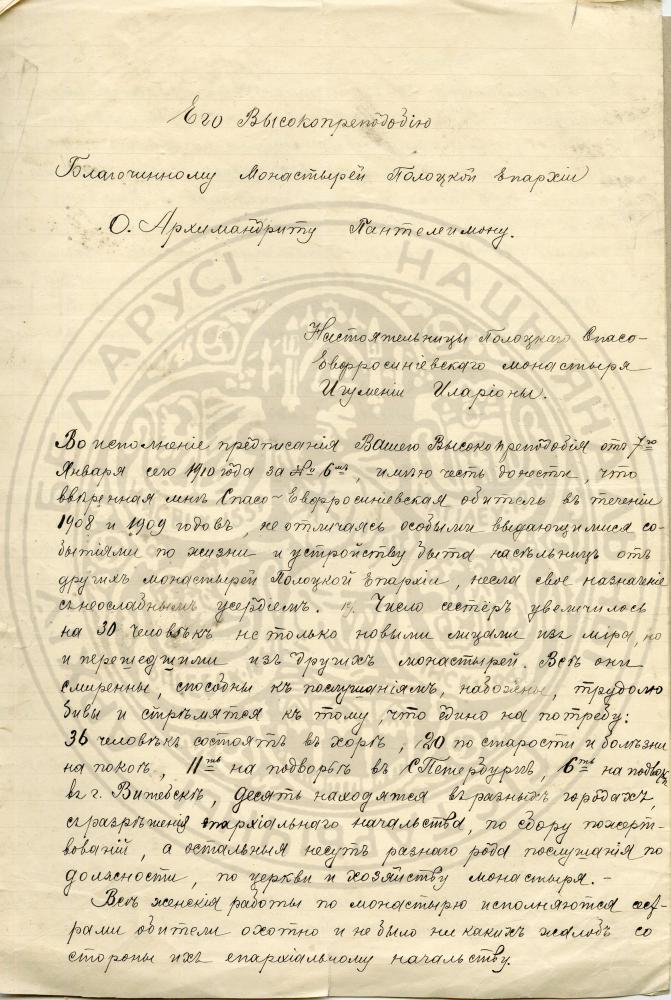 Его Высокопреподобію
Благочинному Монастырей Полоцкой Епархіи
О. Архимандриту Пантелеимону.
Настоятельницы Полоцкаго Спасо-
Евфросиніевскаго монастыря
Игуменіи Иларіоны.
Во исполненіе предписанія Вашего Высокопреподобія отъ 7го
Января сего 1910 года за № 6мъ, имѣю честь донести, что
ввѣренная мнѣ Спасо-Евфросиніевская обитель въ теченіи
1908 и 1909 годовъ, не отличаясь особыми выдающимися со-
бытіями по жизни и устройству быта насѣльницъ отъ
другихъ монастырей Полоцкой Епархіи, несла свое назначеніе
съ неослабнымъ усердіемъ. Число сестеръ увеличилось
на 30 человѣкъ не только новыми лицами изъ міра, но
и перешедшими изъ другихъ монастырей. Всѣ они
смиренны, способны къ послушаніямъ, набожны, трудолю
бивы и стремятся къ тому, что едино на потребу:
36 человѣкъ состоятъ въ хорѣ, 20 по старости и болѣзни
на покоѣ, 11ть на подворьѣ въ С Петербургѣ, 6ть на подворьѣ
въ г. Витебскѣ, десять находятся въ разныхъ городахъ,
съ разрѣшенія епархіальнаго начальства, по сбору пожерт-
вованій, а остальныя несутъ разнаго рода послушанія по
должности, по церкви и хозяйству монастыря. -
Всѣ женскія работы по монастырю исполняются сест-
рами обители охотно и не было ни какихъ жалобъ со
стороны ихъ епархіальному начальству.
АРУСІ
НАЦЫ